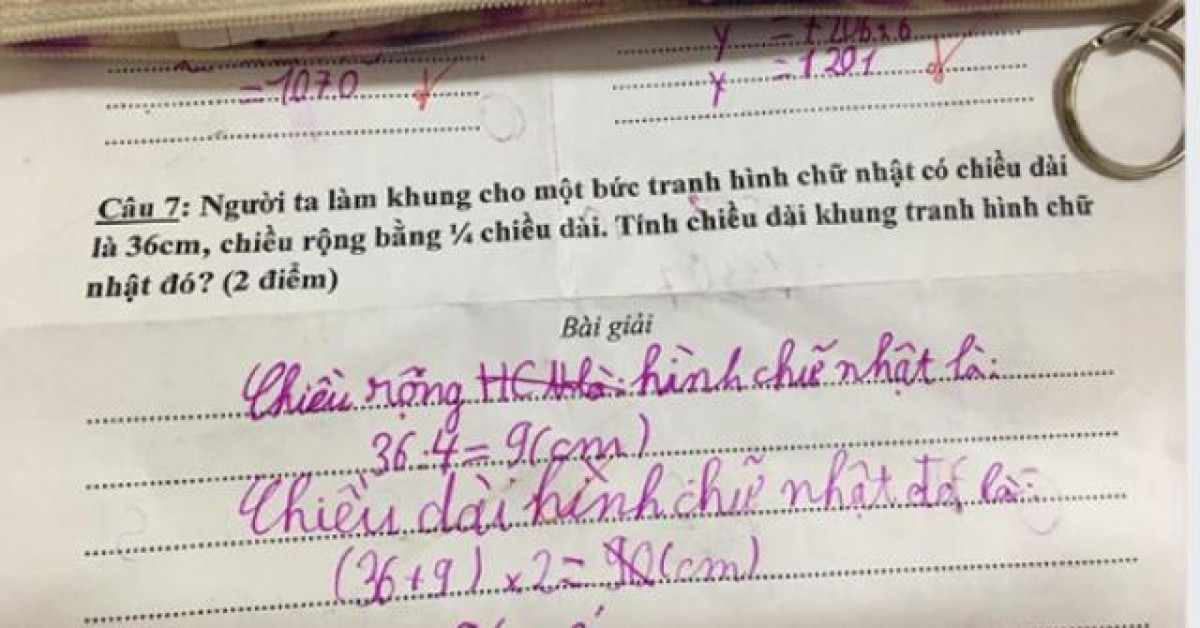 y = 1206 x 6
= 1070
y = 1201
Câu 7: Người ta làm khung cho một bức tranh hình chữ nhật có chiều dài
là 36cm, chiều rộng bằng ¼ chiều dài. Tính chiều dài khung tranh hình chữ
nhật đó? (2 điểm)
Bài giải
Chiều rộng hình chữ nhật là:
36:4 = 9(cm)
Chiều dài hình chữ nhật đó là:
(36+9) x 2 = 90(cm)